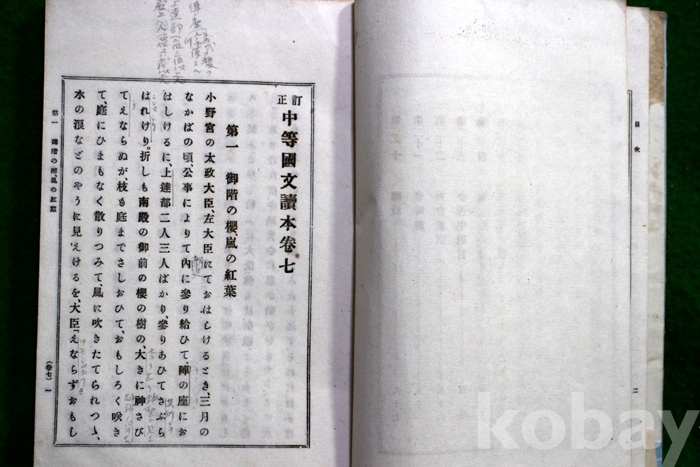 訂正 中等國文讀本卷七
第一 御階の櫻嵐の紅葉
小野宮の太政大臣、左大臣にておはしけるとき、三月の
なかばの頃、公事によりて內に參り給ひて、陣の座にお
はしけるに、上達部二人三人ばかり、參りあひてさぶら
はれけり。折しも南殿の御前の櫻の樹の、大きに神さび
てえならぬが、枝も庭までさしおひて、おもしろく咲き
て、庭にひまもなく散りつみて、風に吹きたてられつゝ、
水の浪などのやうに見えけるを、大臣「えならずおもし
第一 御階の櫻嵐の紅葉
(卷七) 一
目次
二
kobay